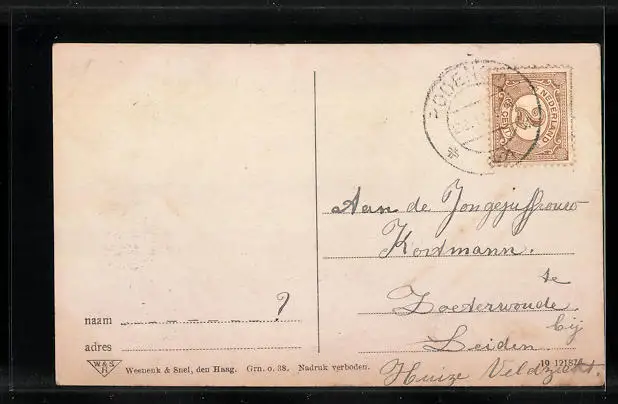 RODEN
NEDERLAND
2½
CENT
Aan de Jongejuffrouw
Kordmann.
te
Zoeterwoude
bij
Leiden.
Huize Veldzicht.
naam ?
adres
W & S
H
Weenenk & Snel, den Haag. Grn. o. 38. Nadruk verboden.
19 12187